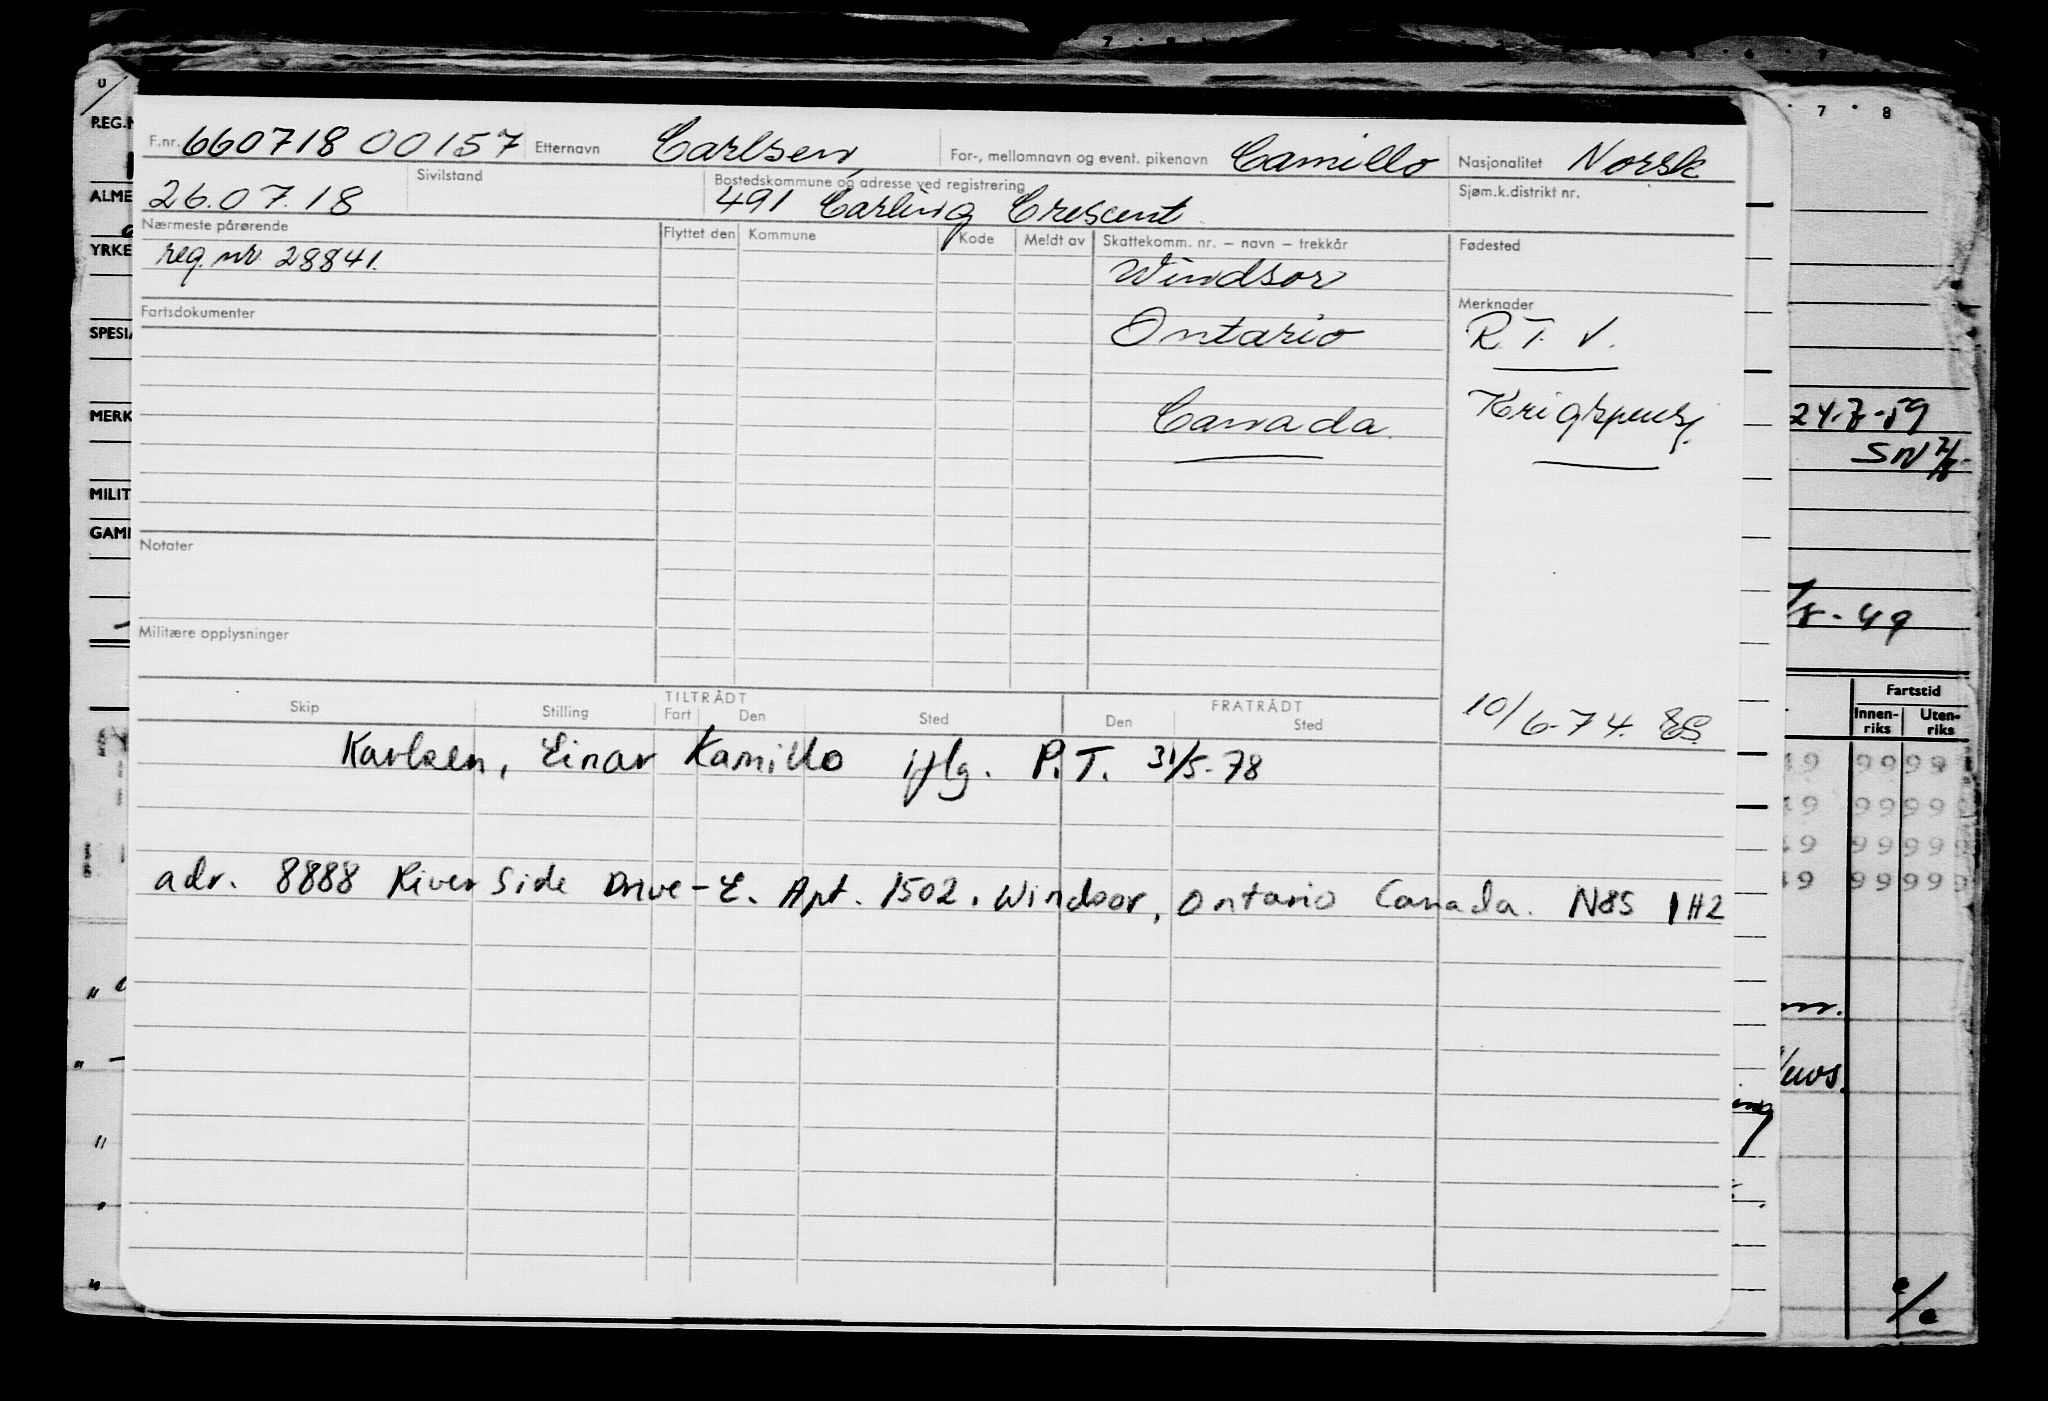 F.nr. 660718 00157 Etternavn Carlsen, For-, mellomnavn og event. pikenavn Camillo Nasjonalitet Norsk
26.07.18 Sivilstand Bostedskommune og adresse ved registrering 491 Carling Crescent Sjøm.k.distrikt nr.
Nærmeste pårørende Flyttet den Kommune Kode Meldt av Skattekomm. nr. – navn – trekkår Fødested
reg. nr 28841. Windsor
Fartsdokumenter Ontario Merknader R.T.V.
Canada. Krigspensj.
Notater
Militære opplysninger
TILTRÅDT FRATRÅDT
Skip Stilling Fart Den Sted Den Sted 10/6-74.
Karlsen, Einar Kamillo iflg. P.T. 31/5-78
adr. 8888 River Side Drive-E. Apt. 1502. Windsor, Ontario Canada. N8S 1H2
REG.N
ALME
YRKE
SPESIA
MERK
MILIT
GAMI
7 8
24.7-59
SN
-49
Fartstid
Innen-riks Uten-riks
49 99 99
49 99 99
49 99 99
49 99 99